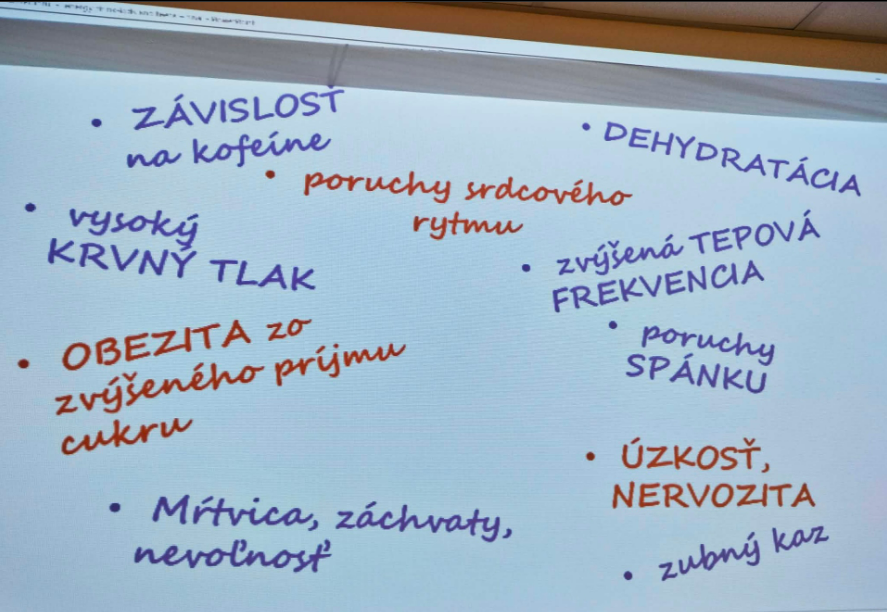 • ZÁVISLOSŤ
na kofeíne
• DEHYDRATÁCIA
• poruchy srdcového
rytmu
• vysoký
KRVNÝ TLAK
• zvýšená TEPOVÁ
FREKVENCIA
• OBEZITA zo
zvýšeného príjmu
cukru
• poruchy
SPÁNKU
• ÚZKOSŤ,
NERVOZITA
• Mŕtvica, záchvaty,
nevoľnosť
• zubný kaz